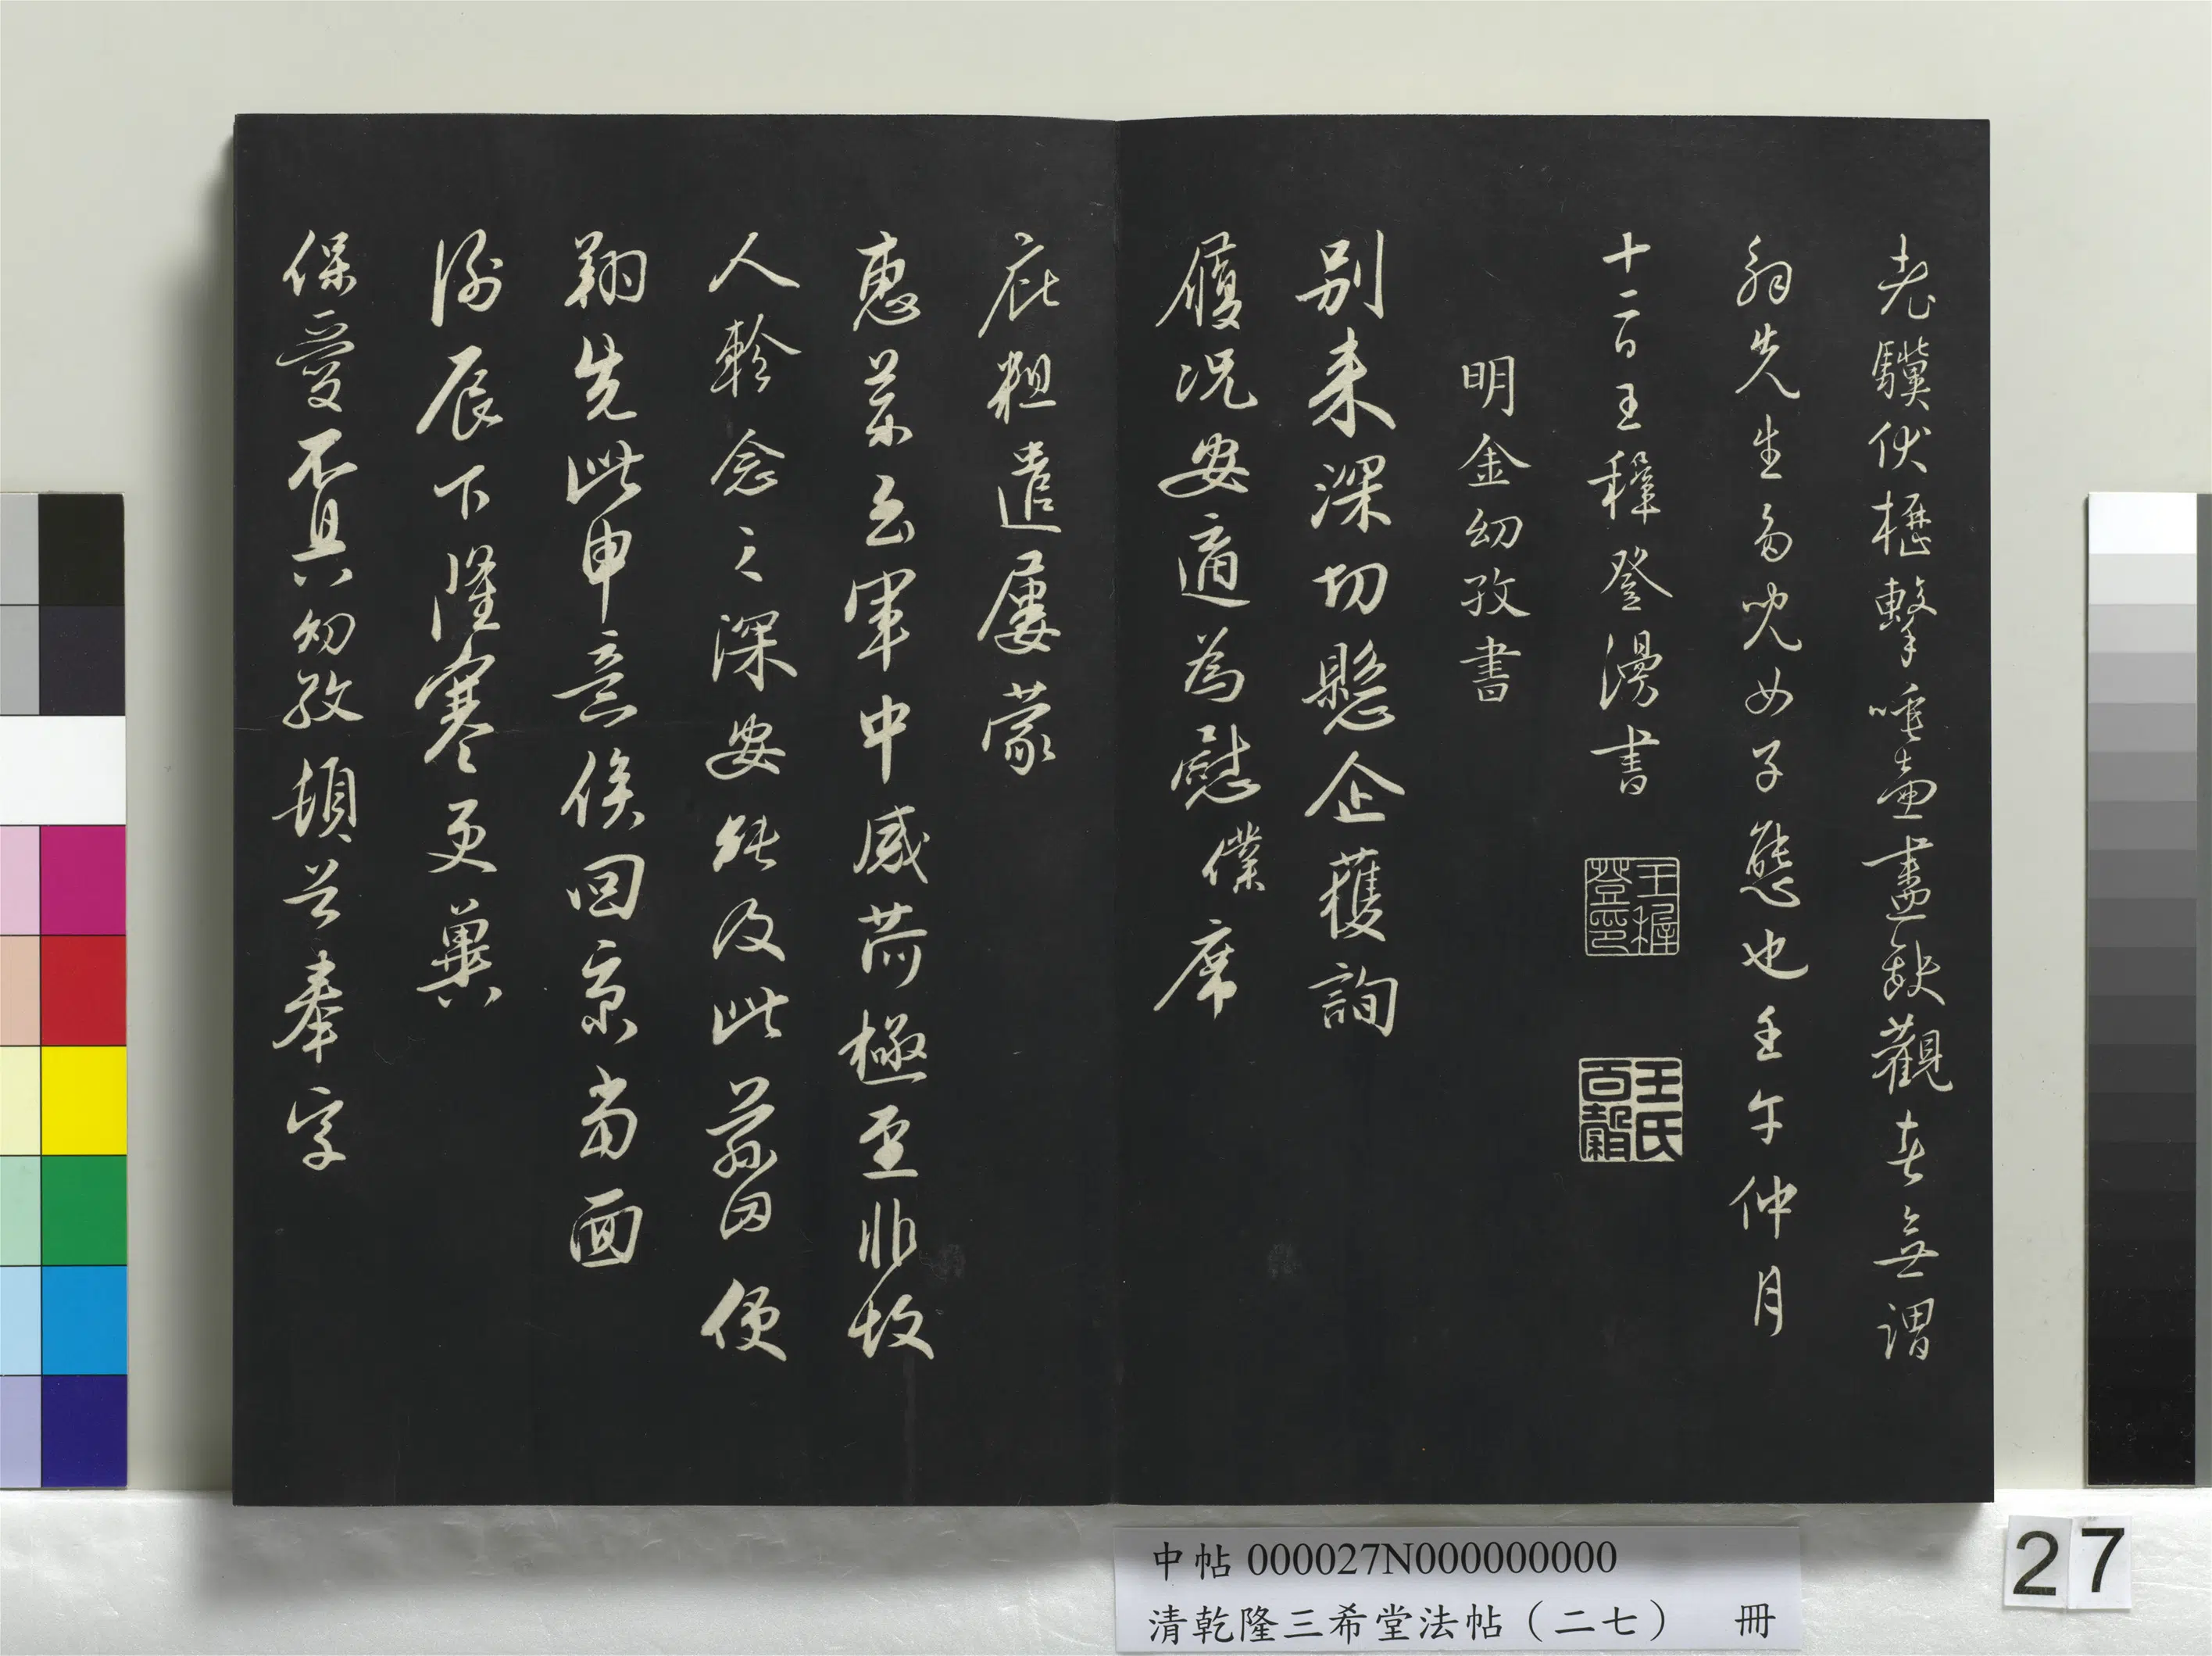 老驥伏櫪擊唾壺盡缺觀者無謂
翁先生多兒女子態也壬午仲月
十二日王穉登漫書
王穉登印
王氏百穀
明金幼孜書
別來深切懸企獲詢
履況安適為慰僕席
庇粗遣屢蒙
惠茶至軍中感荷極至非故
人軫念之深安能及此茲因便
翔先此申意俟回京當面
謝辰下隆寒更冀
保愛不具幼孜頓首奉字
中帖000027N000000000
清乾隆三希堂法帖（二七） 冊
27